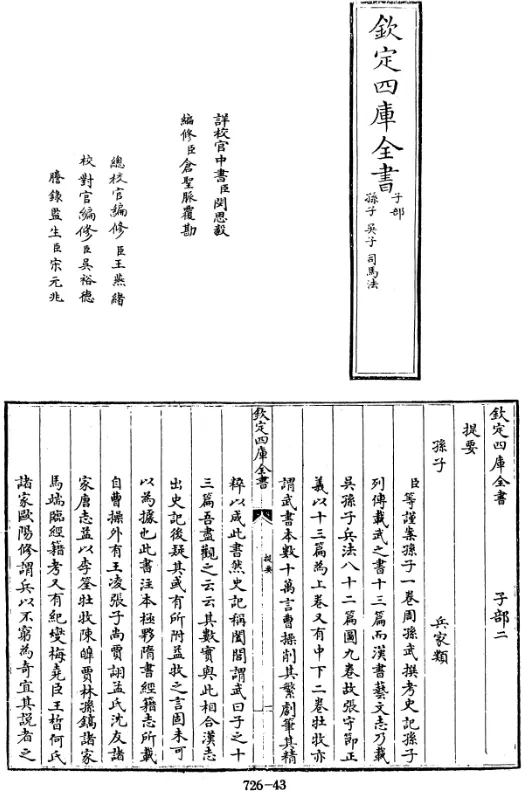 欽定四庫全書
子部
孫子 吳子 司馬法
詳校官中書臣閔思毅
編修臣倉聖脈覆勘
總校官編修臣王燕緒
校對官編修臣吳裕德
謄錄監生臣宋元兆
欽定四庫全書 子部二
提要
孫子 兵家類
臣等謹案孫子一卷周孫武撰考史記孫子
列傳載武之書十三篇而漢書藝文志乃載
吳孫子兵法八十二篇圖九卷故張守節正
義以十三篇為上卷又有中下二卷杜牧亦
謂武書本數十萬言曹操削其繁劇筆其精
欽定四庫全書
提要
一
粹以成此書然史記稱闔閭謂武曰子之十
三篇吾盡觀之云云其數實與此相合漢志
出史記後疑其或有所附益牧之言固未可
以為據也此書注本極夥隋書經籍志所載
自曹操外有王凌張子尚賈詡孟氏沈友諸
家唐志益以李筌杜牧陳皥賈林孫鎬諸家
馬端臨經籍考又有紀燮梅堯臣王晳何氏
諸家歐陽修謂兵以不窮為奇宜其說者之
726-43